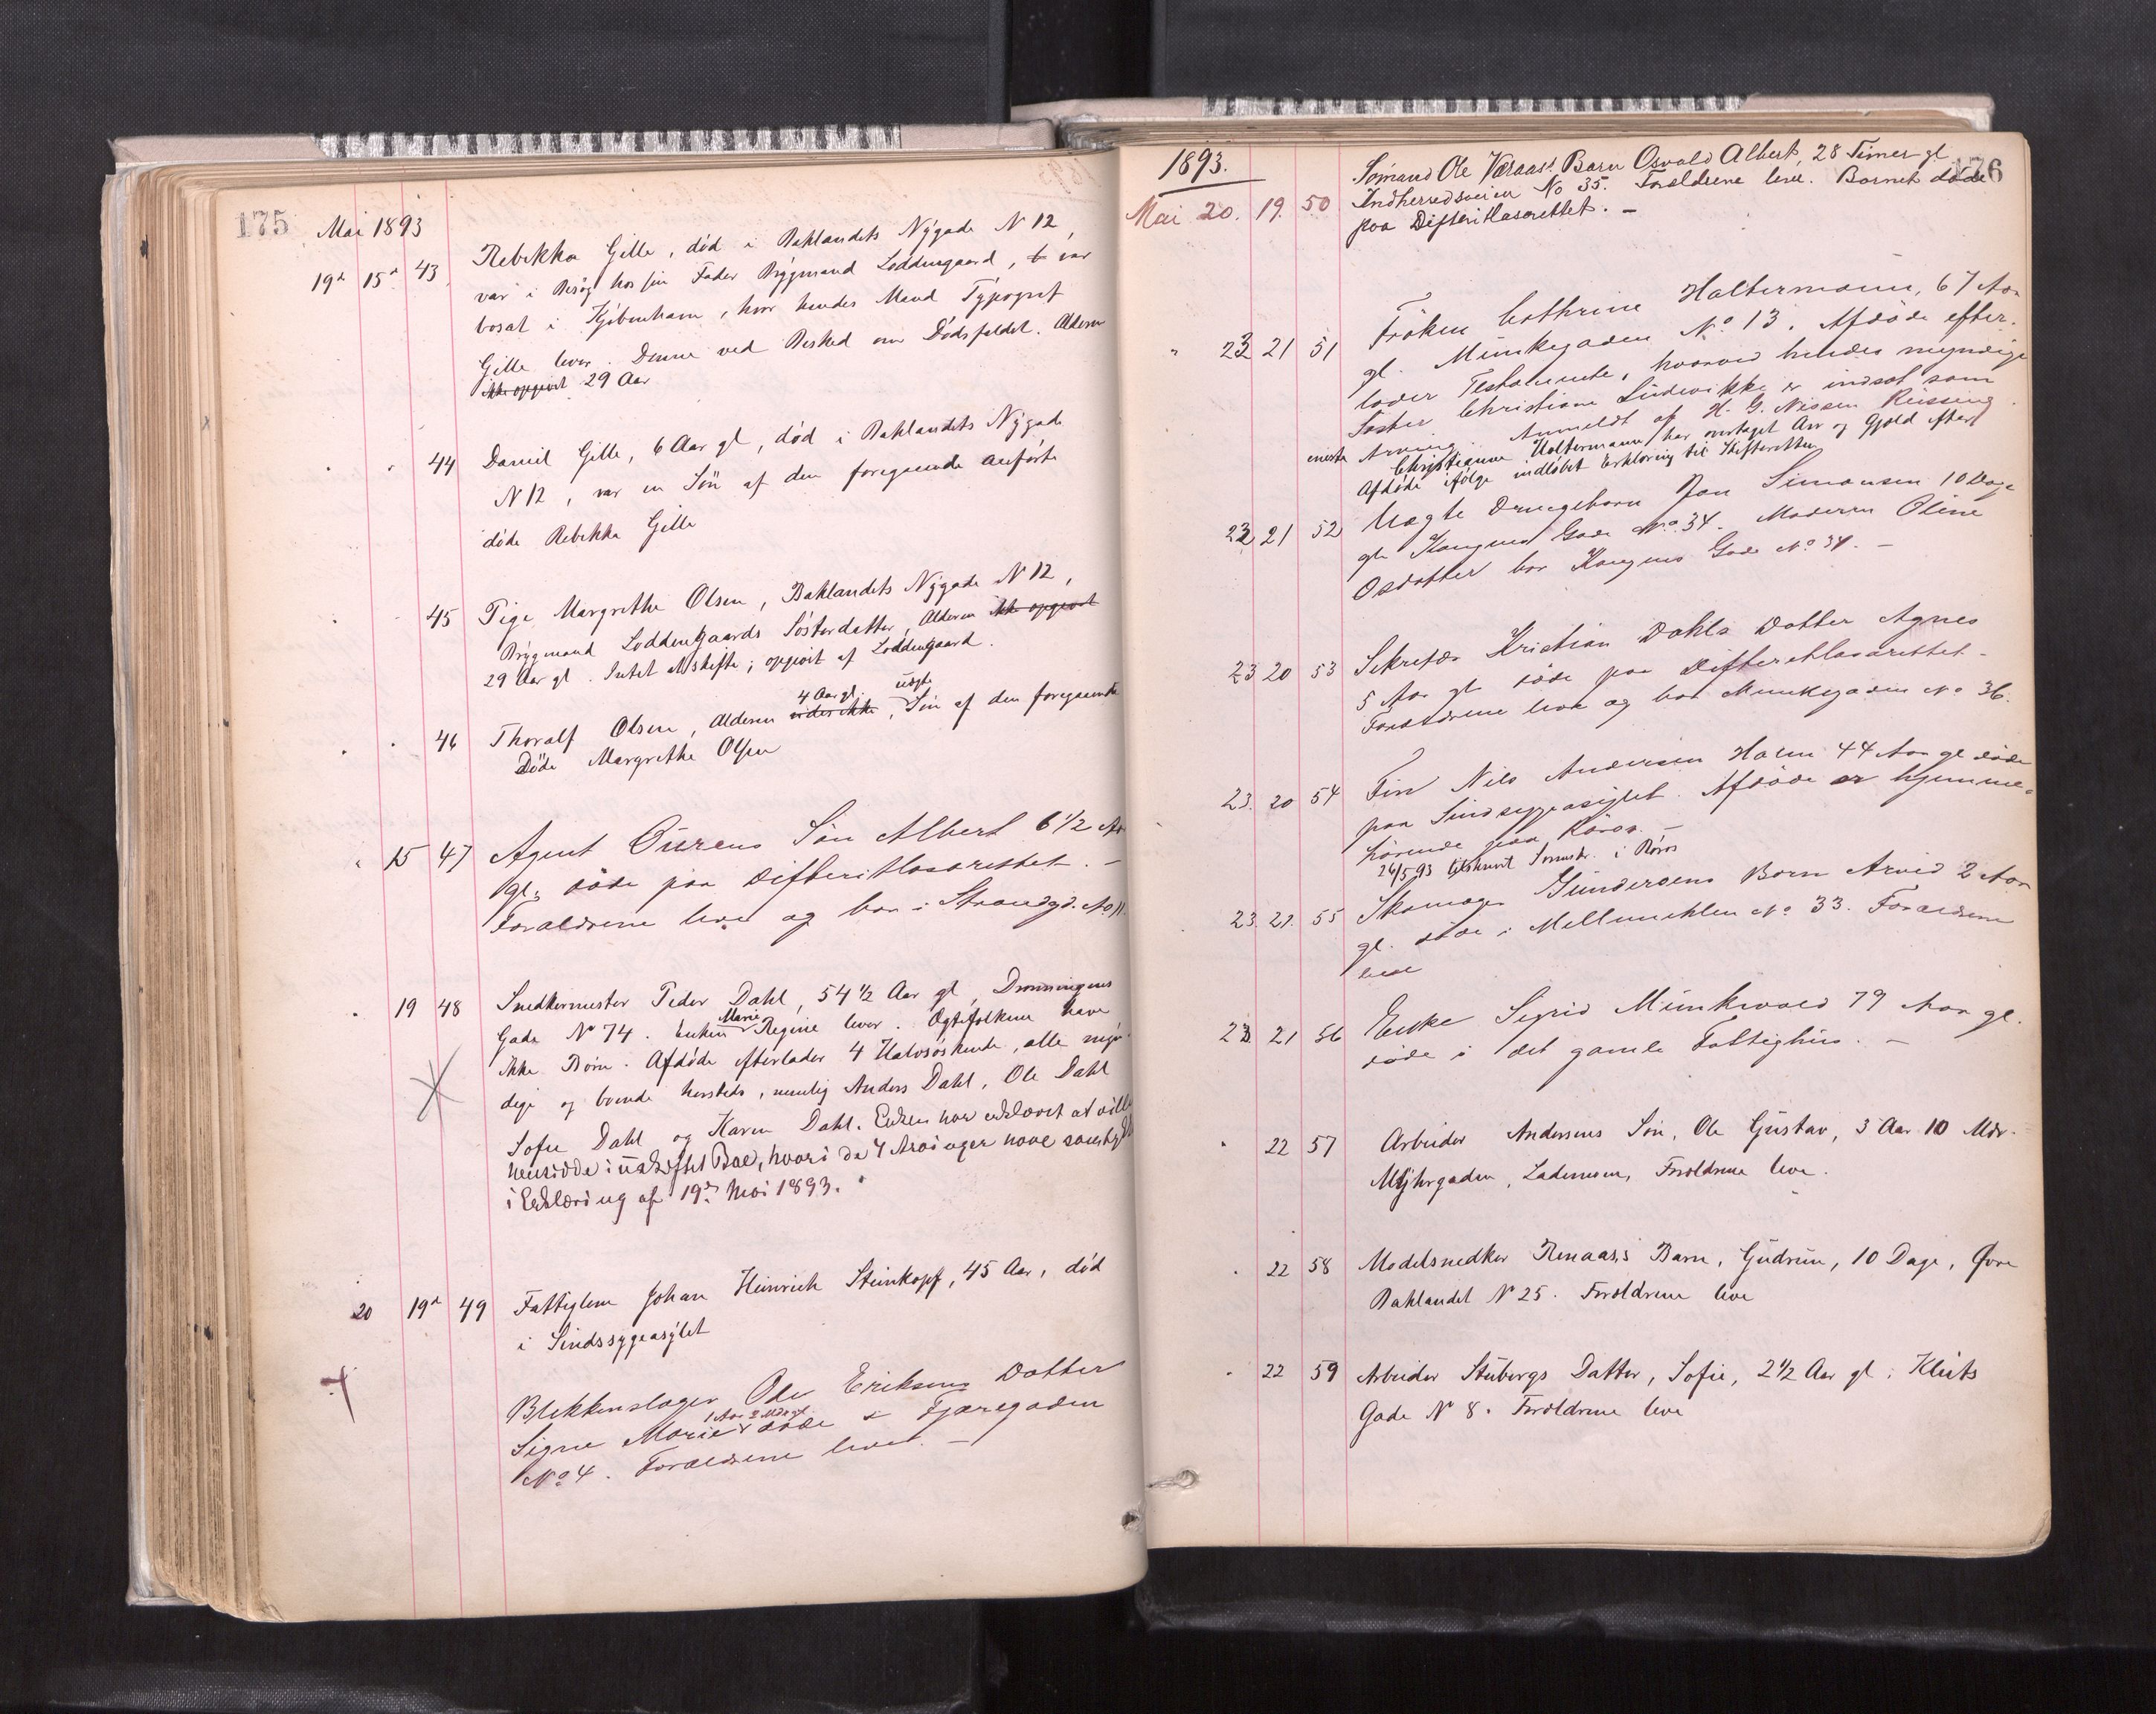 175
Mai 1893
19d 15d 43 Rebekka Gille, död i Baklandets Nygade N 12,
var i Besög hos sin Fader Brygmand Loddengaard, & var
bosat i Kjöbenhavn, hvor hendes Mand Typograf
Gille lever. Denne ved Besked om Dödsfaldet. Alderen
ikke opgivet 29 Aar
" " 44 Daniel Gille, 6 Aar gl, död i Baklandets Nygade
N 12, var en Sön af den foregaaende anförte
döde Rebekka Gille
" " 45 Pige Margrethe Olsen, Baklandets Nygade N 12,
Brygmand Loddengaards Sösterdatter, Alderen ikke opgivet
29 Aar gl. Intet at skifte; opgivet af Loddengaard.
4 Aar gl. uægte
" " 46 Thoralf Olsen, Alderen vides ikke, Sön af den foregaaende
Döde Margrethe Olsen
" 15 47 Agent Ourens Sön Albert 6 1/2 Aar
gl. döde paa Difteritlasarettet. –
Forældrene leve og bor i Strandgd. No 11.
" 19 48 Snedkermester Peder Dahl, 54 1/2 Aar gl, Dronningens
Gade No 74. Enken Marie Regine lever. Ægtefolkene have
ikke Börn. Afdöde efterlader 4 Halvsöskende, alle myn-
dige og boende hersteds, nemlig Anders Dahl, Ole Dahl
Sofie Dahl og Karen Dahl. Enken har erklæret at ville
hensidde i uskiftet Bo, hvori de 4 Arvinger have samtykket
i Erklæring af 19de Mai 1893.
20 19d 49 Fattiglem Johan Heinrich Steinkopf, 45 Aar, död
i Sindssygeasylet
Blikkenslager Ole Eriksens Datter
1 Aar 2 Mdr gl.
Signe Marie döde i Fjæregaden
No 4. Forældrene lever. –
176
1893.
Mai 20. 19. 50 Sömand Ole Væraas's Barn Osvald Albert, 28 Timer gl
Indherredsveien No 35. Forældrene leve. Barnet döde
paa Difteritlasarettet. –
" 23 21 51 Fröken Cathrine Haltermann, 67 Aar
gl. Munkegaden No 13. Afdöde efter-
lader Testamente, hvorved hendes myndige
Söster Christiane Ludovikke er indsat som
eneste Arving. Anmeldt af H. G. Nissen
Christianne Haltermann har overtaget Arv og Gjæld efter
Afdöde ifölge indlöbet Erklæring til Skifteretten
23 21 52 Uægte Drengebarn Jon Simonsen 10 Dage
gl Kongens Gade No 34. Moderen Oline
Osdatter bor Kongens Gade No 34. –
23 20 53 Sekretær Kristian Dahls Datter Agnes
5 Aar gl döde paa Difteritlasarettet –
Forældrene leve og bor Munkegaden No 36.
23. 20 54 Finn Nils Andersen Holm 44 Aar gl döde
paa Sindssygeasylet. Afdöde er hjemme-
hörende paa Röros. –
26/5 93 tilskrevet Sorenskr. i Röros
23. 21. 55 Skomager Gundersens Barn Arvid 2 Aar
gl. döde i Mellemiklen No 33. Forældrene
leve
23 21 56 Enke Sigrid Munkvold 79 Aar gl.
döde i det gamle Fattighus. –
" 22 57 Arbeider Andersens Sön, Ole Gustav, 3 Aar 10 Mdr.
Myhrgaden, Lademoen, Forældrene leve.
" 22 58 Modelsnedker Renaas's Barn, Gudrun, 10 Dage, Övre
Baklandet N 25. Forældrene leve
" 22 59 Arbeider Stubergs Datter, Sofie, 2 1/2 Aar gl: Klæts
Gade No 8. Forældrene leve